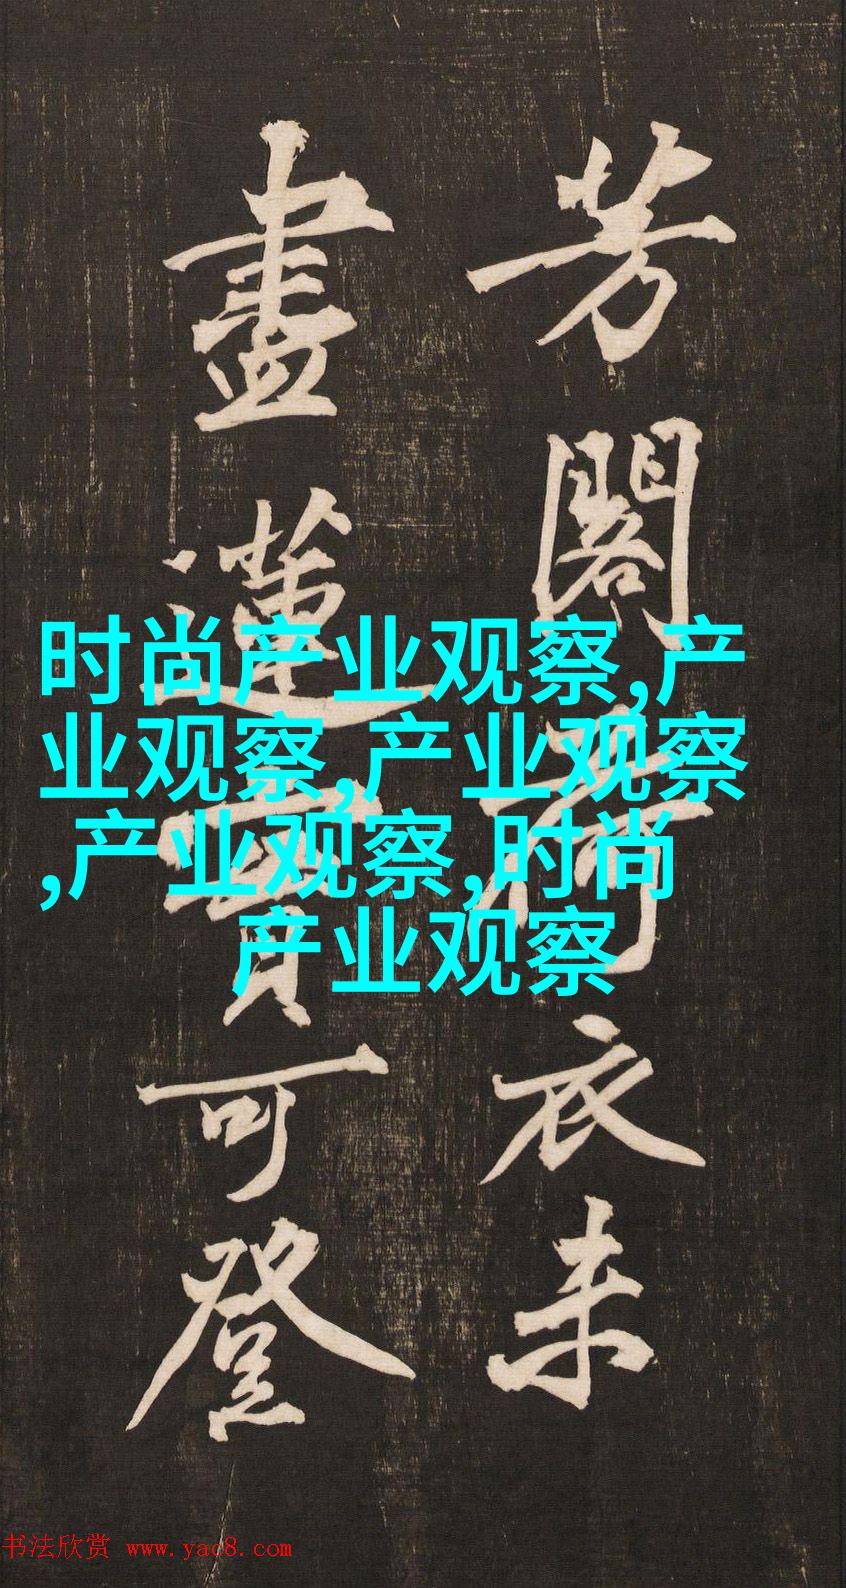 芳閣衣未
盡蓮可登
时尚产业观察,产
业观察,产业观察
,产业观察,时尚
产业观察
书法欣赏 www.yac8.com